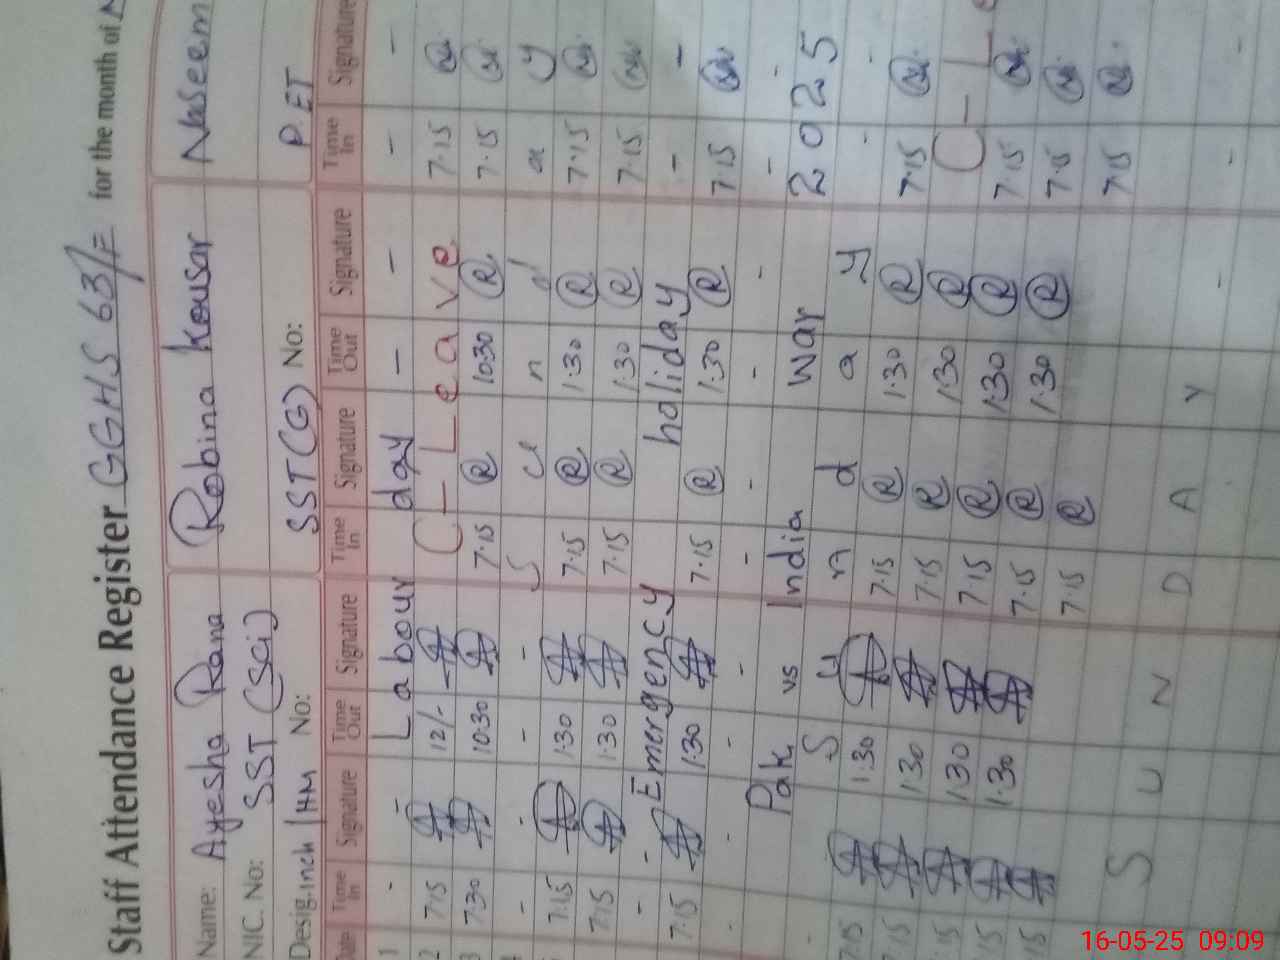 Staff Attendance Register GGHS 63/F for the month of
Name: Ayesha Rana Robina Kousar Naseem
NIC. No: SST (Sci)
Desig. Inch/HM No: SST (G) No: P.ET
Date Time In Signature Time Out Signature Time In Signature Time Out Signature Time In Signature
1 - Labour day - - - -
2 7:15 12/- C - Leave 7:15
3 7:30 10:30 7:15 R 10:30 R 7:15
4 - - - - S u n d a y
7:15 1:30 7:15 R 1:30 R 7:15
7:15 1:30 7:15 R 1:30 R 7:15
- - Emergency holiday - -
7:15 1:30 7:15 R 1:30 R 7:15
- - - - - - - - - -
Pak vs India War 2025
S u n d a y
7:15 1:30 7:15 R 1:30 R 7:15
7:15 1:30 7:15 R 1:30 R C - L
:15 1:30 7:15 R 1:30 R 7:15
:15 1:30 7:15 R 1:30 R 7:15
:15 7:15 R 7:15
S U N D A Y - - -
16-05-25 09:09